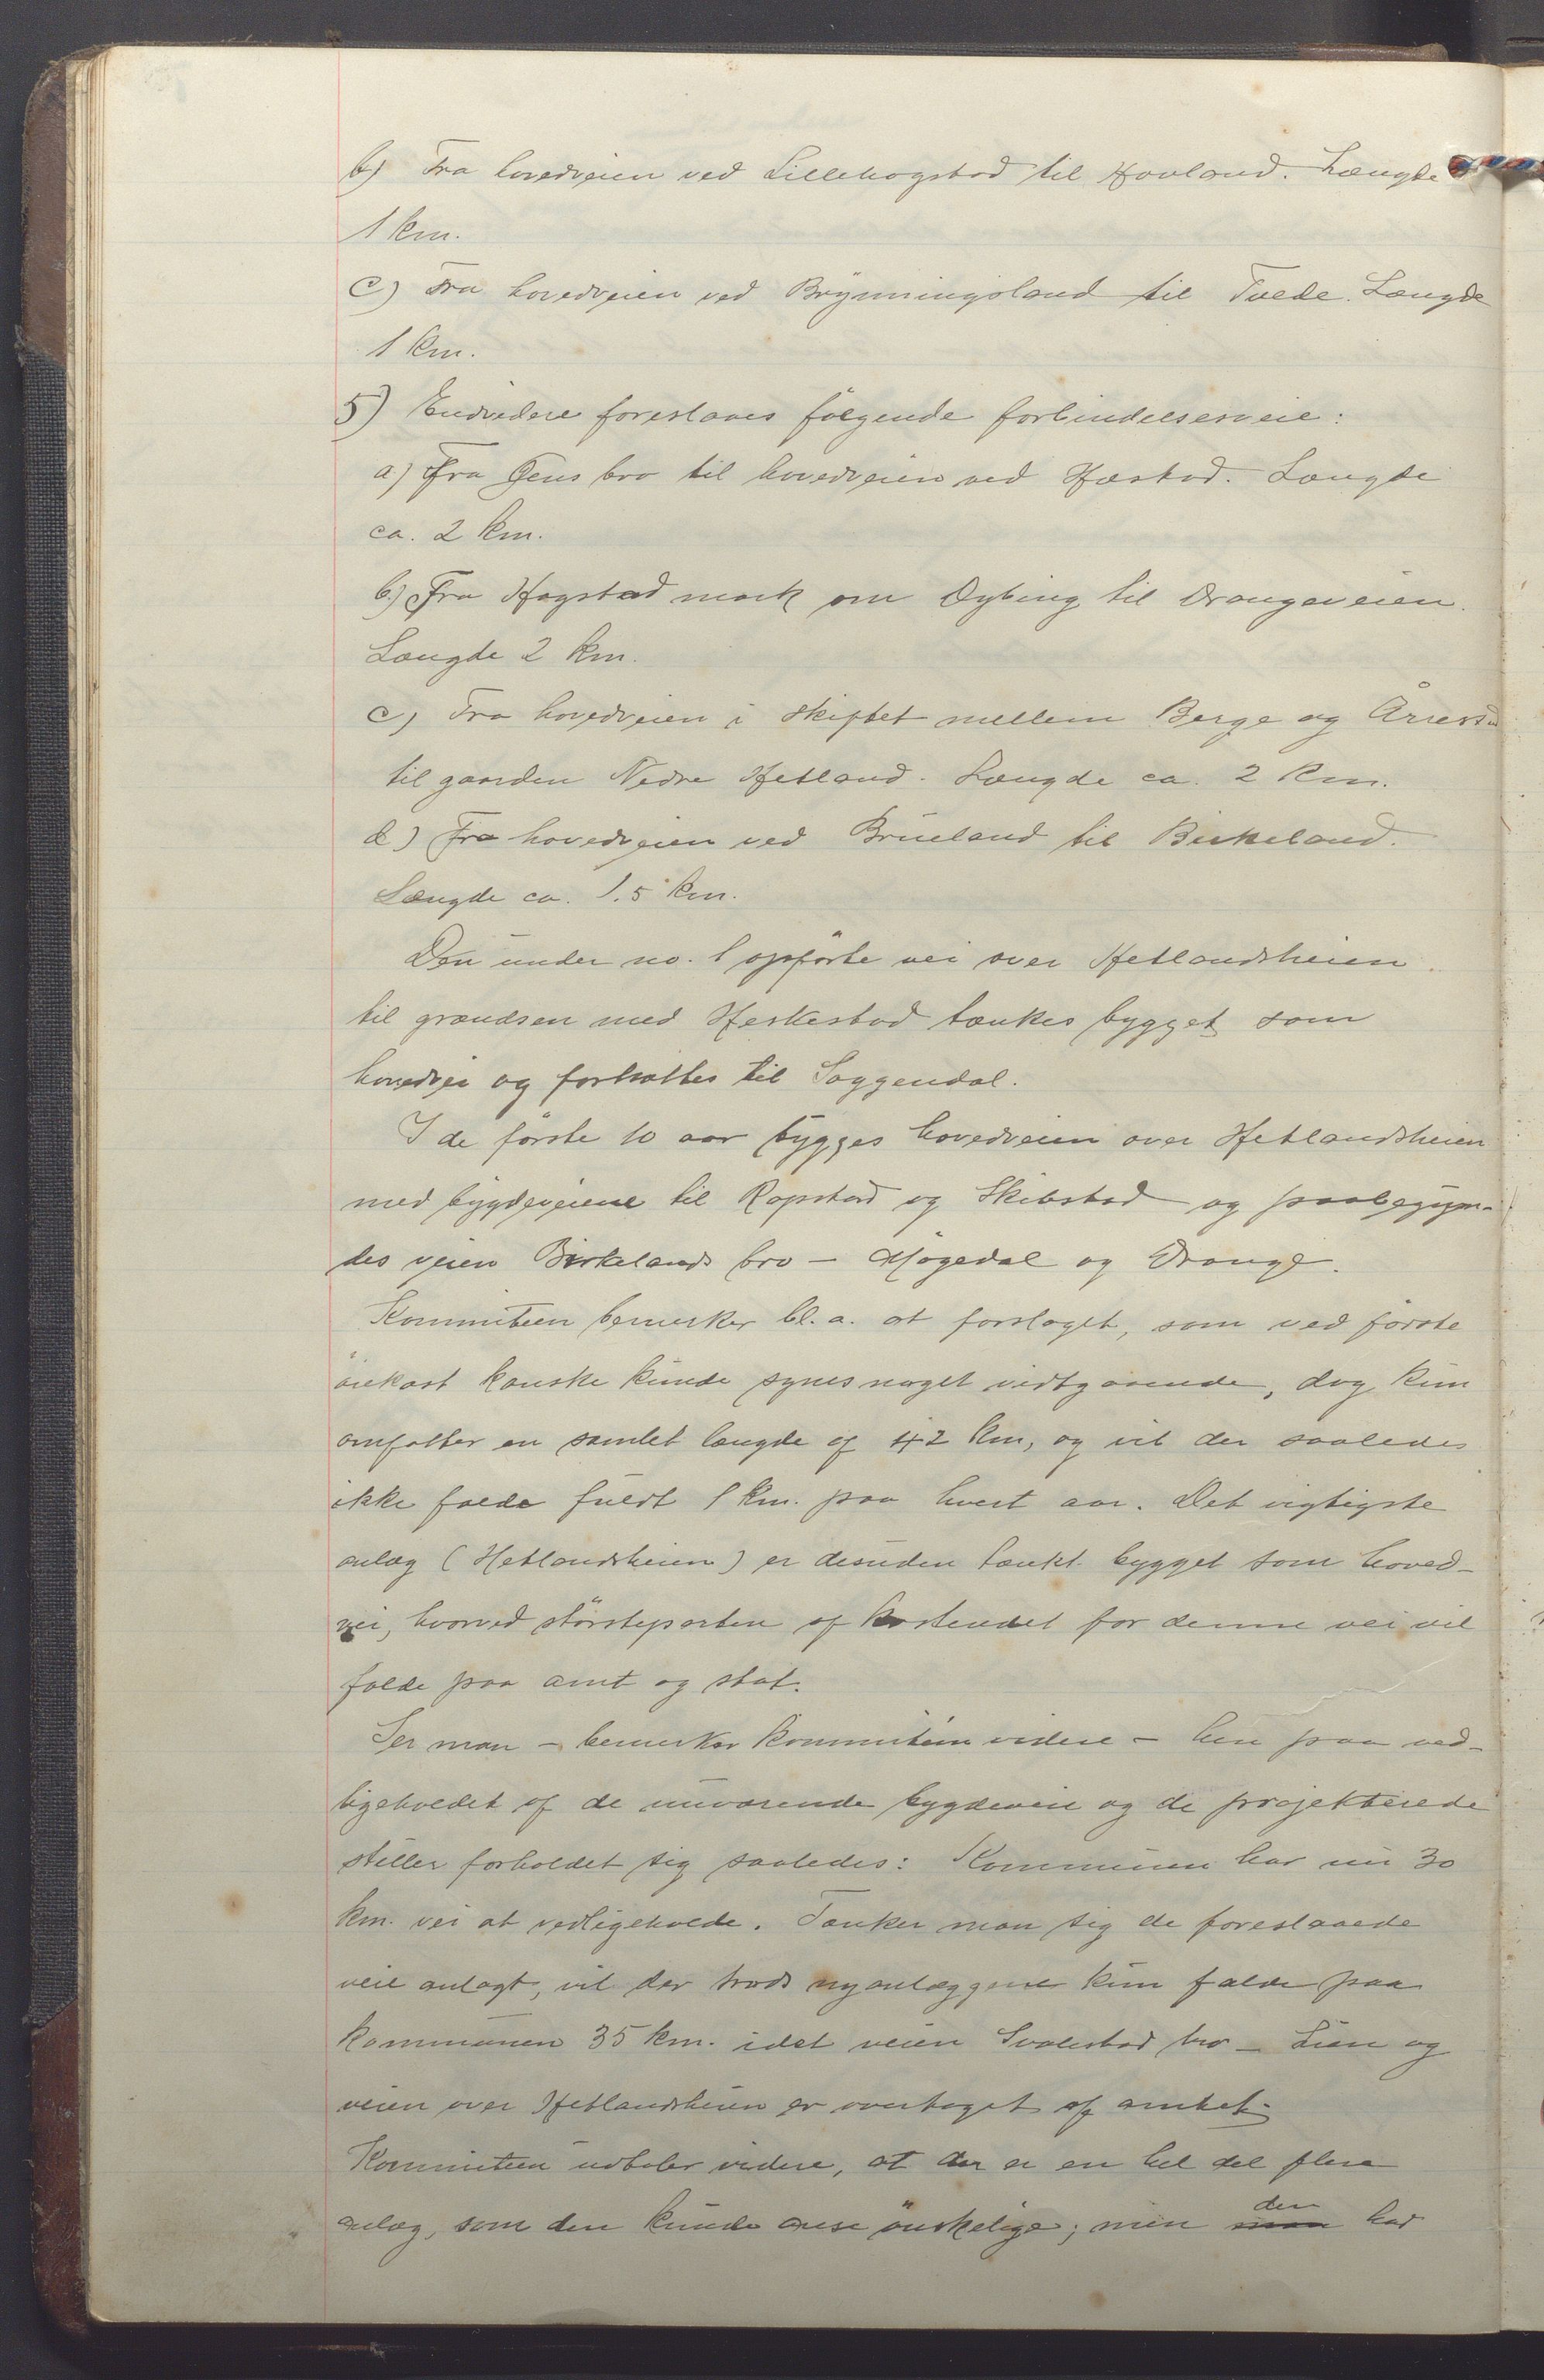 b) Fra hovedveien ved Lillehogstad til Hovland. Længde
1 km.
c) Fra hovedveien ved Brynningsland til Tvede. Længde
1 km.
5) Endvidere foreslaaes følgende forbindelsesveie:
a) Fra Fens bro til hovedveien ved Hæstad. Længde
ca. 2 km.
b) Fra Hogstad mark om Dybing til Drangeveien.
Længde 2 km.
c) Fra hovedveien i skiftet mellem Berge og Årrestad
til gaarden Nedre Hetland. Længde ca. 2 km.
d) Fra hovedveien ved Brueland til Birkeland.
Længde ca. 1.5 km.
Den under no. 1 opførte vei over Hetlandsheien
til grændsen med Heskestad tænkes bygget som
hovedvei og fortsættes til Soggendal.
I de første 10 aar bygges hovedveien over Hetlandsheien
med bygdeveiene til Rapstad og Skibstad og paabegyn-
des veien Birkelands bro - Mjøgedal og Drange.
Kommiteen bemerker bl. a. at forslaget, som ved første
øiekast kanske kunde synes noget vidtgaaende, dog kun
omfatter en samlet længde af 42 km, og vil der saaledes
ikke falde fuldt 1 km. paa hvert aar. Det vigtigste
anlæg (Hetlandsheien) er desuden tænkt bygget som hoved-
vei, hvorved størsteparten af kostendet for denne vei vil
falde paa amt og stat.
Ser man - bemerker kommiteen videre - hen paa ved-
ligeholdet af de nuværende bygdeveie og de projekterede
stiller forholdet sig saaledes: Kommunen har nu 30
km. vei at vedligeholde. Tænker man sig de foreslaaede
veie anlagt, vil der trods nyanlæggene kun falde paa
kommunen 35 km. idet veien Svalestad bro - Lien og
veien over Hetlandsheien er overtaget af amtet.
Kommiteen udtaler videre, at der er en hel del flere
anlæg, som den kunde anse ønskelige; men man den har